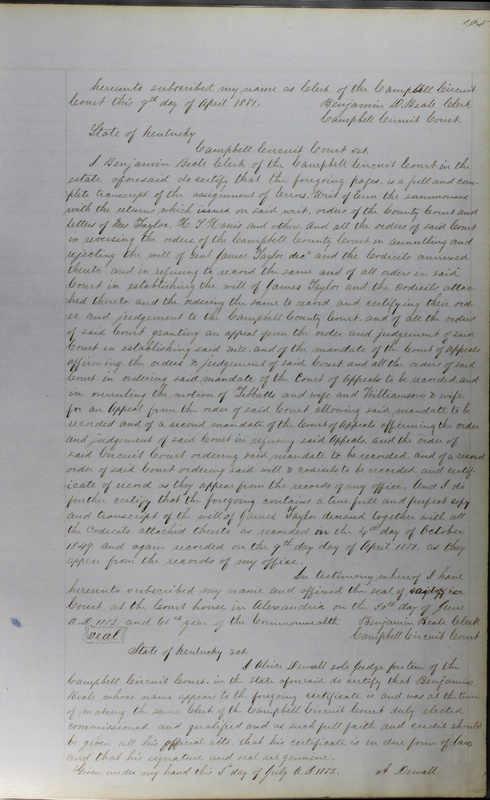 hereunto subscribed my name as Clerk of the Campbell Circuit
Court this 9th day of April 1851. Benjamin D. Beale Clerk
Campbell Circuit Court.
State of Kentucky
Campbell Circuit Court sct.
I Benjamin Beale Clerk of the Campbell Circuit Court in the
estate aforesaid do certify that the foregoing pages, is a full and com-
plete transcript of the assignment of Errors, Writ of Error, the summonses
with the returns which issued on said writ, orders of the County Court and
letters of Mrs Taylor, H. T. Harris and other, and all the orders of said Court
in reversing the orders of the Campbell County Court in annulling and
rejecting the will of Genl James Taylor decd and the Codicils annexed
thereto and in refusing to record the same and of all orders in said
Court in establishing the will of James Taylor and the Codicils attac-
hed thereto and the ordering the same to record and certifying their ord-
er and judgement to the Campbell County Court, and of all the orders
of said Court granting an appeal from the order and judgement of said
Court in establishing said will, and of the mandate of the Court of Appeals
affirming the orders & judgement of said Court and all the orders of said
Court in ordering said mandate of the Court of Appeals to be recorded, and
in overruling the motion of Tibbatts and wife and Williamson & wife
for an Appeal from the order of said Court allowing said mandate to be
recorded and of a second mandate of the Court of Appeals affirming the order
and judgement of said Court in refusing said Appeals, and the order of
said Circuit Court ordering said mandate to be recorded, and of a record
order of said Court ordering said will & codicils to be recorded and certif-
icate of record as they appear from the records of my office. And I do
further certify that the foregoing contains a true full and perfect copy
and transcript of the will of James Taylor deceased together with all
the Codicils attached thereto as recorded on the 4th day of October
1849 and again recorded on the 9th day day of April 1851. as they
appear from the records of my office.
In testimony whereof I have
hereunto subscribed my name and affixed the seal of said
Court at the Court house in Alexandria on the 30th day of June
A.D. 1852. and 60th year of the Commonwealth Benjamin Beale Clerk
seal Campbell Circuit Court
State of Kentucky sct.
I Alvin Dewall sole Judge pro tem of the
Campbell Circuit Court, in the state aforesaid do certify that Benjamin
Beale whose name appears to the foregoing certificate is and was at the time
of making the same Clerk of the Campbell Circuit Court duly elected
commissioned and qualified and as such full faith and credit should
be given all his official acts, that his certificate is in due form of law
and that his signature and seal are genuine.
Given under my hand this 5th day of July A.D. 1852. A Dewall.